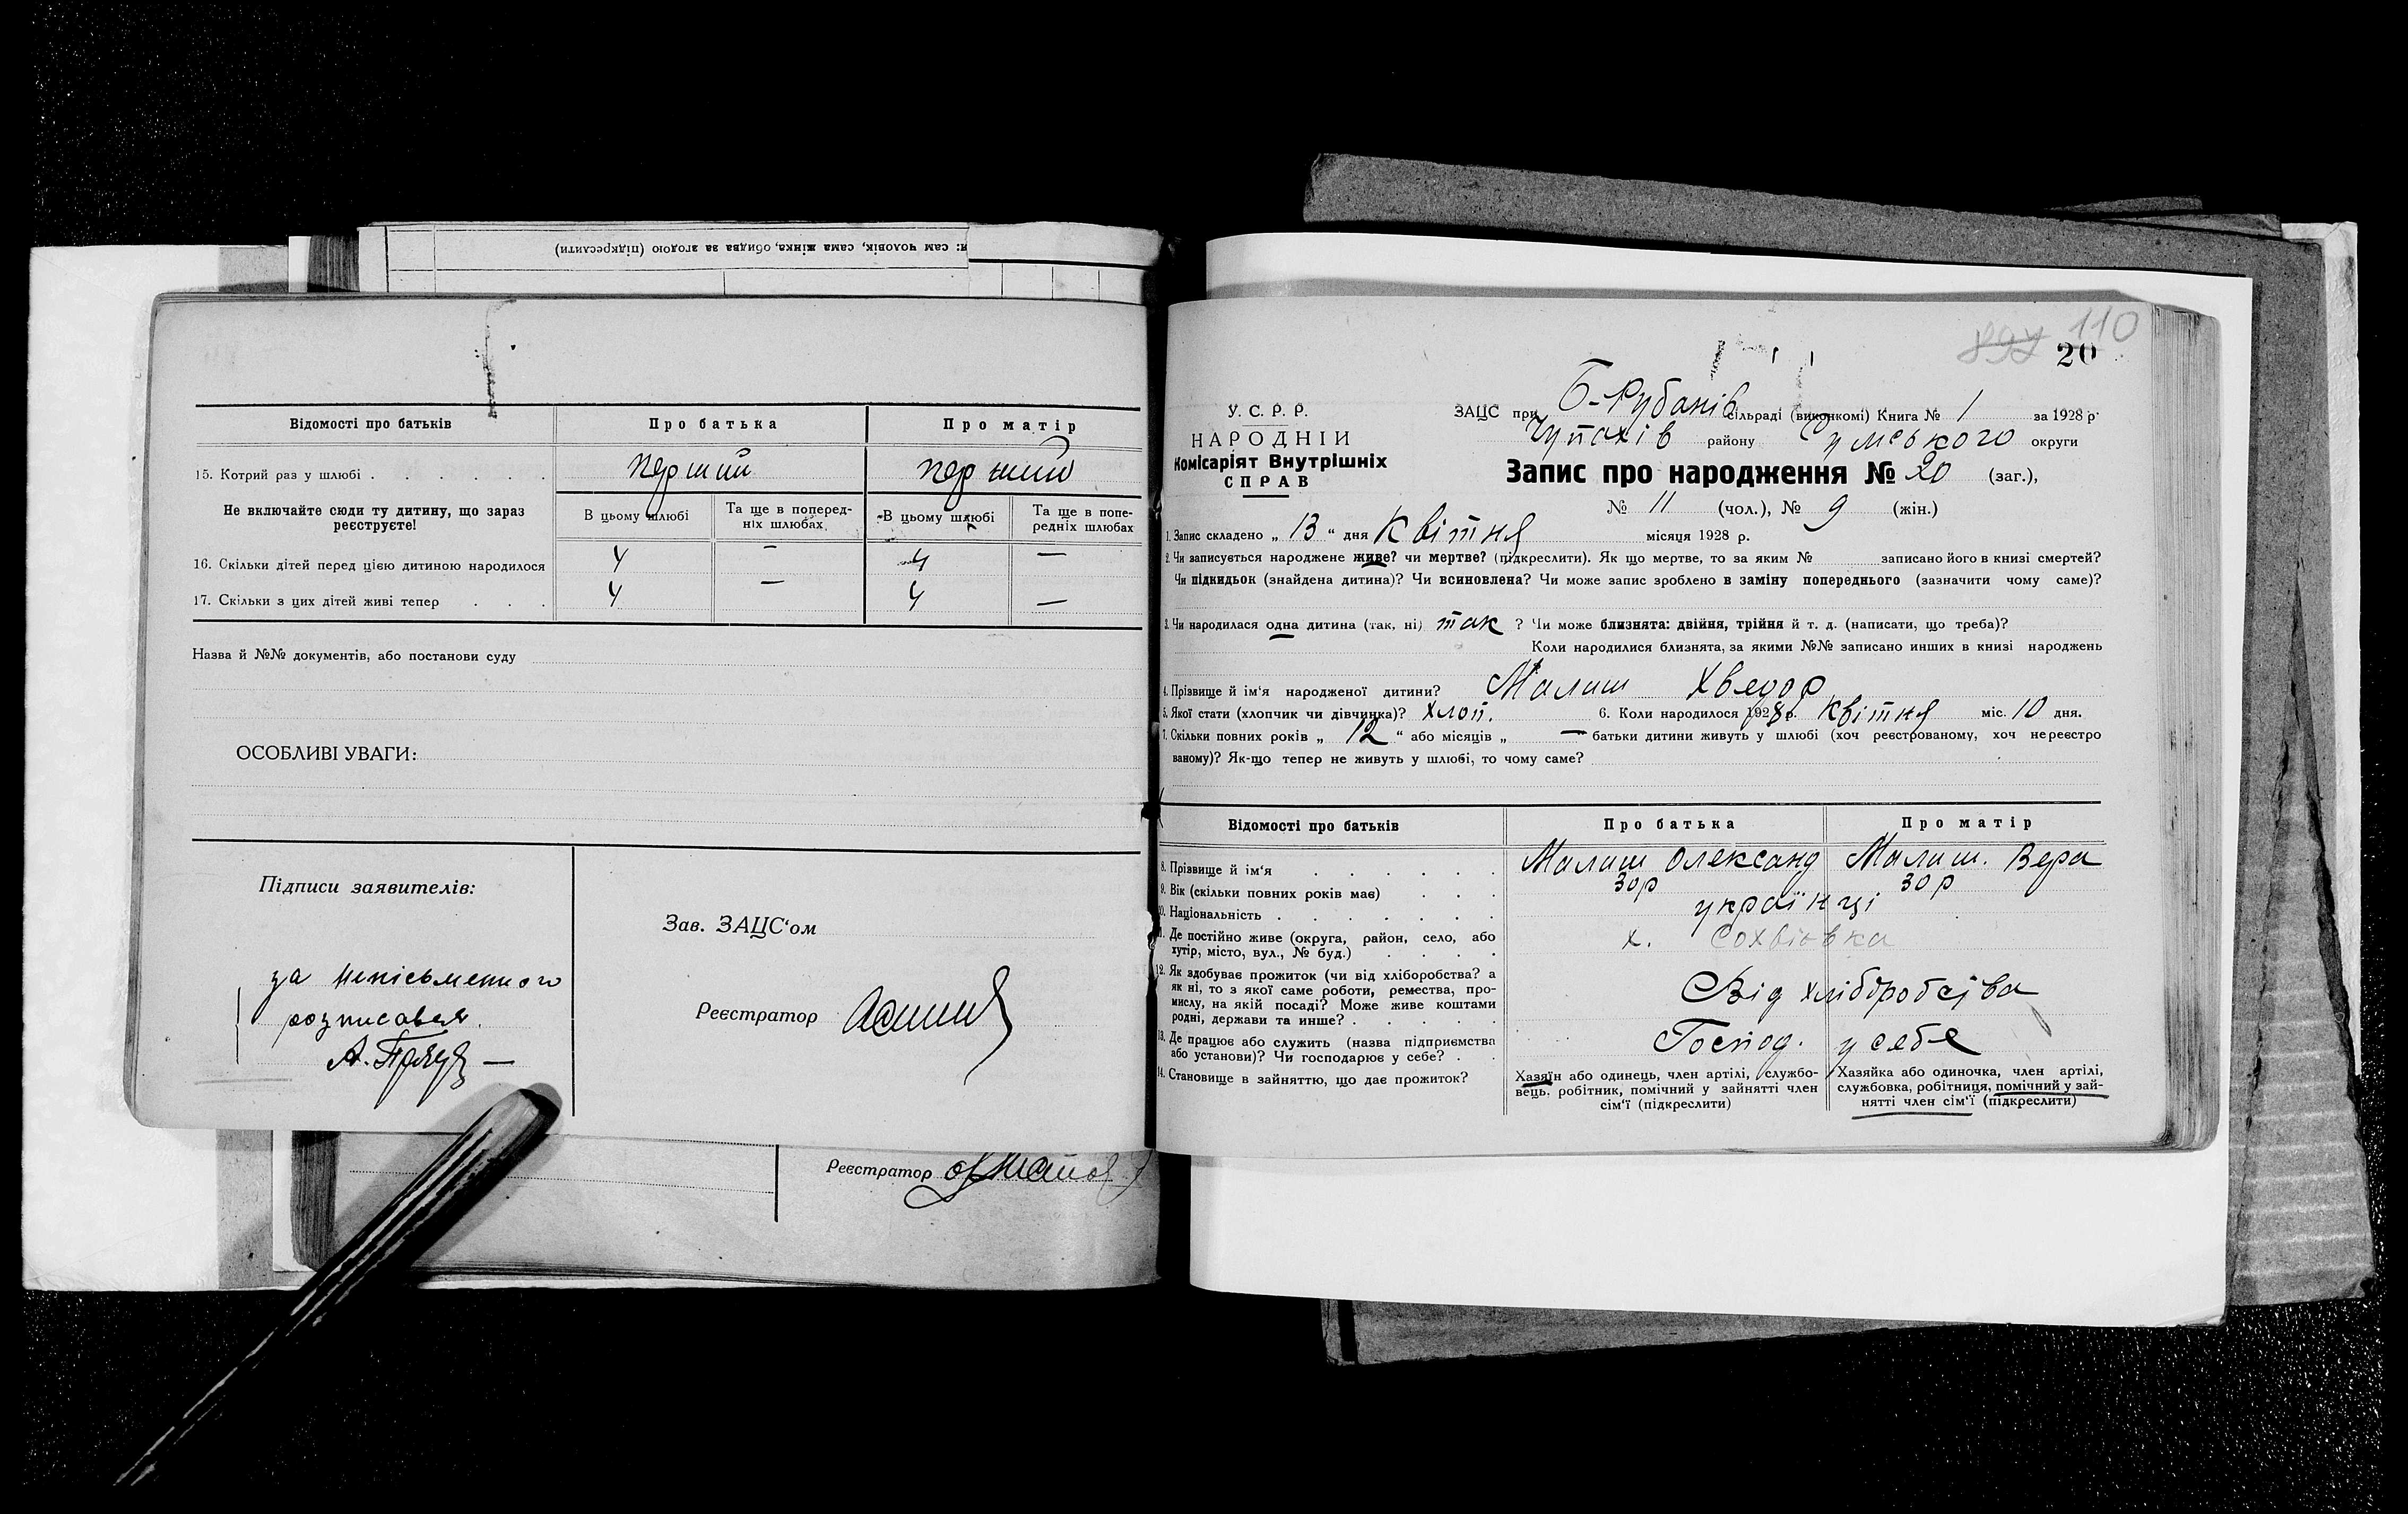 и: сам чоловік, сама жінка, обидва за згодою (підкреслити)
Відомості про батьків Про батька Про матір
15. Котрий раз у шлюбі перший перший
Не включайте сюди ту дитину, що зараз реєструєте!
В цьому шлюбі Та ще в поперед-ніх шлюбах В цьому шлюбі Та ще в попе-редніх шлюбах
16. Скільки дітей перед цією дитиною народилося 4 — 4 —
17. Скільки з цих дітей живі тепер 4 — 4 —
Назва й №№ документів, або постанови суду
ОСОБЛИВІ УВАГИ:
Підписи заявителів:
за неписьменного
розписався
Зав. ЗАЦС‘ом
Реєстратор
Реєстратор
110
20
У. С. Р. Р.
НАРОДНІЙ
Комісаріят Внутрішніх
СПРАВ
ЗАЦС при Б-Рубанів сільраді (виконкомі) Книга № 1 за 1928 р.
Чупахів району Сумського округи
Запис про народження № 20 (заг.),
№ 11 (чол.), № 9 (жін.)
1. Запис складено „ 13 “ дня квітня місяця 1928 р.
2. Чи записується народжене живе? чи мертве? (підкреслити). Як що мертве, то за яким № записано його в книзі смертей?
Чи підкидьок (знайдена дитина)? Чи всиновлена? Чи може запис зроблено в заміну попереднього (зазначити чому саме)?
3. Чи народилася одна дитина (так, ні) так ? Чи може близнята: двійня, трійня й т. д. (написати, що треба)?
Коли народилися близнята, за якими №№ записано инших в книзі народжень
4. Прізвище й ім‘я народженої дитини? Малиш Хведор
5. Якої стати (хлопчик чи дівчинка)? хлоп. 6. Коли народилося 1928 р. квітня міс. 10 дня.
7. Скільки повних років „ 12 “ або місяців „ — батьки дитини живуть у шлюбі (хоч реєстрованому, хоч нереєстро
ваному)? Як-що тепер не живуть у шлюбі, то чому саме?
Відомості про батьків Про батька Про матір
8. Прізвище й ім‘я Малиш Олександ Малиш. Вера
9. Вік (скільки повних років має) 30 р 30 р
10. Національність українці
11. Де постійно живе (округа, район, село, або
хутір, місто, вул., № буд.) х.
12. Як здобуває прожиток (чи від хліборобства? а
як ні, то з якої саме роботи, ремества, про-
мислу, на якій посаді? Може живе коштами
родні, держави та инше? Від хліборобства
13. Де працює або служить (назва підприємства
або установи)? Чи господарює у себе? Господ. у себе
14. Становище в зайняттю, що дає прожиток?
Хазяїн або одинець, член артілі, службо-
вець, робітник, помічний у зайнятті член
сім‘ї (підкреслити)
Хазяйка або одиночка, член артілі,
службовка, робітниця, помічний у зай-
нятті член сім‘ї (підкреслити)